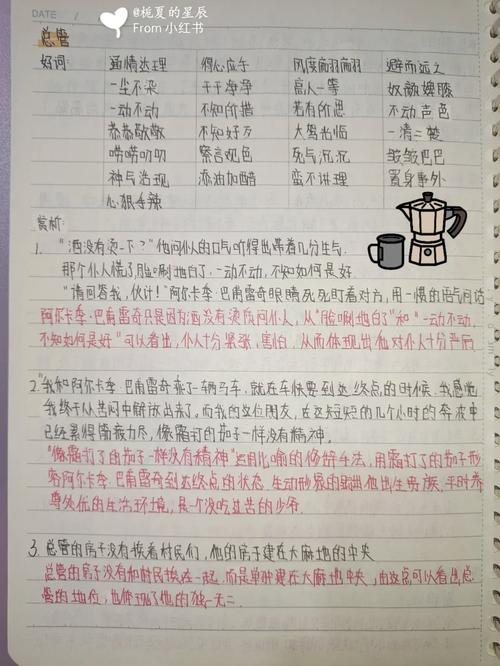 DATE
@栀夏的星辰
From 小红书
总管
好词 通情达理 得心应手 风度翩翩 避而远之
一尘不染 干干净净 高人一等 奴颜婢膝
一动不动 不知所措 若有所思 不动声色
恭恭敬敬 不知好歹 大驾光临 一清二楚
唠唠叨叨 察言观色 死气沉沉 皱皱巴巴
神气活现 添油加醋 蛮不讲理 置身事外
心狠手辣
赏析:
1. "酒没有烫一下?"他问仆人的口气听得出带着几分生气.
那个仆人慌了,脸唰地白了,一动不动,不知如何是好.
"请回答我,伙计!"阿尔卡季·巴甫雷奇眼睛死死盯着对方,用一惯的语气问话
阿尔卡季·巴甫雷奇只是因为酒没有烫质问仆人,从"脸唰地白了"和"一动不动,
不知如何是好"可以看出,仆人十分紧张,害怕,从而体现出他对仆人十分严厉
2."我和阿尔卡季·巴甫雷奇乘了一辆马车,就在车快要到达终点的时候,我感觉
我终于从苦闷中解放出来了,而我的这位朋友,在这短短的几个小时的奔波中
已经累得筋疲力尽,像霜打的茄子一样没有精神.
"像霜打了的茄子一样没有精神"运用比喻的修辞手法,用霜打了的茄子形
容阿尔卡季·巴甫雷奇到达终点的状态,生动形象的写出他出生贵族,平时养
尊处优的生活环境,是个没吃过苦的少爷.
3. 总管的房子没有挨着村民们,他的房子建在大麻地的中央
总管的房子没有和村民挨在一起,而是单独建在大麻地中央,由这点可以看出总
管的地位,也体现了他的独一无二.